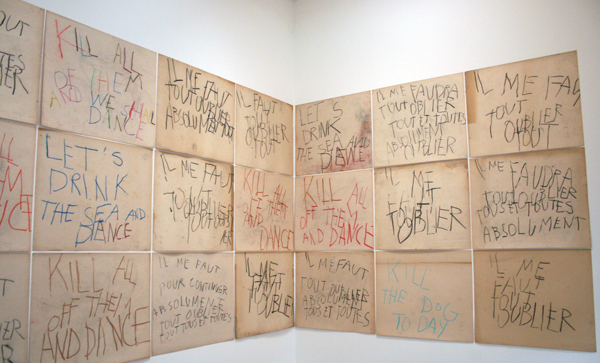 OUT
KILL ALL
OF THEM
AND WE SHALL
DANCE
IL ME FAUT
TOUT OUBLIER
ABSOLUMENT TOUT
IL FAUT
TOUT
OUBLIER
TOUT
LET'S
DRINK
THE SEA AND
DANCE
IL ME FAUDRA
TOUT OUBLIER
TOUT ET TOUTES
ABSOLUMENT
OUBLIER
IL ME FAUT
TOUT
OUBLIER
TOUT
ALL
DANCE
LET'S
DRINK
THE SEA AND
DANCE
IL ME FAUT
TOUT
OUBLIER
KILL ALL
OF THEM
AND DANCE
KILL ALL
OFF THEM
AND DANCE
IL ME
FAUT
TOUT
OUBLIER
IL ME FAUDRA
TOUT OUBLIER
TOUS ET TOUTES
ABSOLUMENT
KILL ALL
OFF THEM
AND DANCE
IL ME FAUT
POUR CONTINUER
ABSOLUMENT
TOUT OUBLIER
TOUT ET TOUTES
IL ME
FAUT
TOUT
OUBLIER
IL ME FAUT
TOUT OUBLIER
ABSOLUMENT
TOUS ET TOUTES
KILL
THE DOG
TODAY
IL ME
FAUT
TOUT
OUBLIER